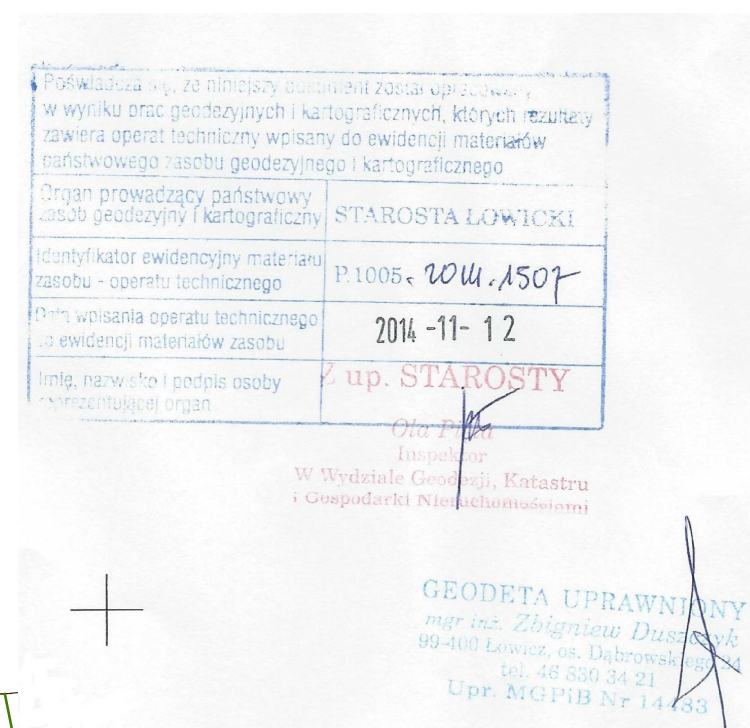 Poświadcza się, że niniejszy dokument został opracowany
w wyniku prac geodezyjnych i kartograficznych, których rezultaty
zawiera operat techniczny wpisany do ewidencji materiałów
państwowego zasobu geodezyjnego i kartograficznego
Organ prowadzący państwowy
zasób geodezyjny i kartograficzny
STAROSTA ŁOWICKI
Identyfikator ewidencyjny materiału
zasobu - operatu technicznego
P.1005. 2014.1507
Data wpisania operatu technicznego
do ewidencji materiałów zasobu
2014 -11- 12
Imię, nazwisko i podpis osoby
reprezentującej organ
Z up. STAROSTY
Ola
Inspektor
W Wydziale Geodezji, Katastru
i Gospodarki Nieruchomościami
GEODETA UPRAWNIONY
mgr inż. Zbigniew Duszczyk
99-400 Łowicz, os. Dąbrowskiego 24
tel. 46 830 34 21
Upr. MGPiB Nr 14483